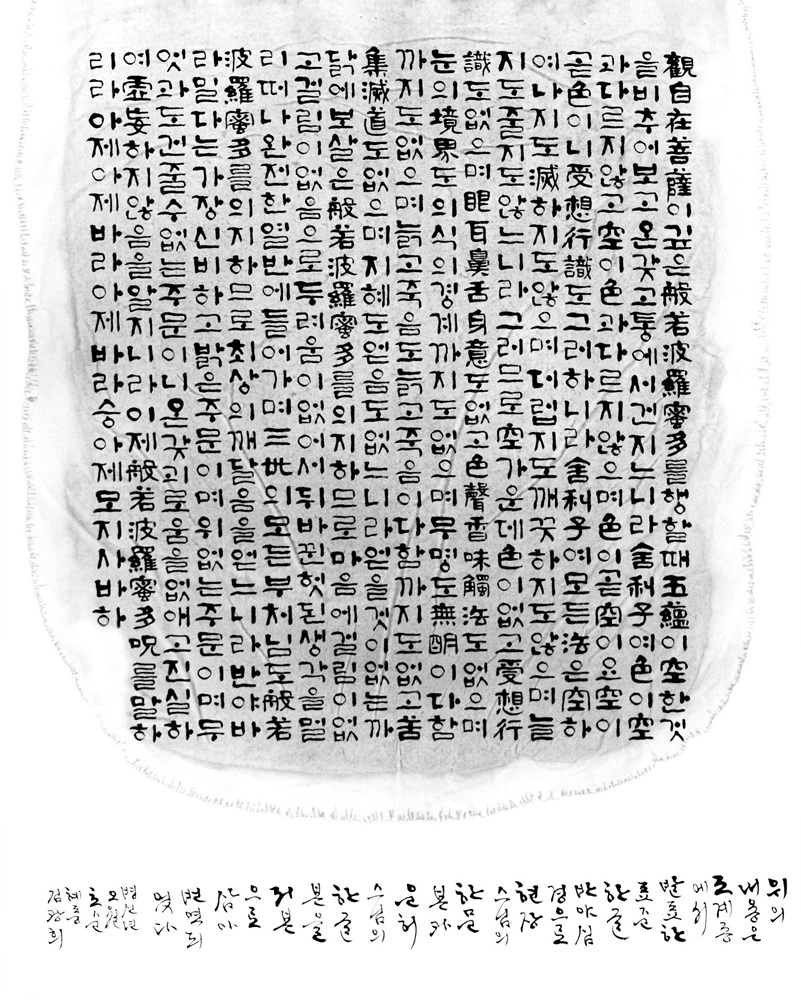 觀自在菩薩이깊은般若波羅蜜多를행할때五蘊이空한것
을비추어보고온갖고통에서건지느니라舍利子여色이空
과다르지않고空이色과다르지않으며色이곧空이요空이
곧色이니受想行識도그러하니라舍利子여모든法은空하
여나지도滅하지도않으며더럽지도깨끗하지도않으며늘
지도줄지도않느니라그러므로空가운데色이없고受想行
識도없으며眼耳鼻舌身意도없고色聲香味觸法도없으며
눈의境界도의식의경계까지도없으며무명도無明이다함
까지도없으며늙고죽음도늙고죽음이다함까지도없고苦
集滅道도없으며지혜도얻음도없느니라얻을것이없는까
닭에보살은般若波羅蜜多를의지하므로마음에걸림이없
고걸림이없음으로두려움이없어서뒤바뀐헛된생각을멀
리떠나완전한열반에들어가며三世의모든부처님도般若
波羅蜜多를의지하므로최상의깨달음을얻느니라반야바
라밀다는가장신비하고밝은주문이며위없는주문이며무
엇과도견줄수없는주문이니온갖괴로움을없애고진실하
여虛妄하지않음을알지니라이제般若波羅蜜多呪를말하
리라아제아제바라아제바라승아제모지사바하
위의
내용은
조계종
에서
발표한
표준
한글
반야심
경으로
현장
스님의
한문
본과
운허
스님의
한글
본을
저본
으로
삼아
번역되
었다
병신년
오월
초순